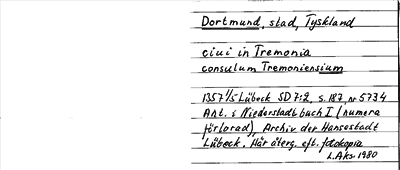 Dortmund, stad, Tyskland
ciui in Tremonia
consulum Tremoniensium
1357 1/5 Lübeck SD 7:2, s. 187, nr 5734
Ant. i Niederstadtbuch I (numera
förlorad), Archiv der Hansestadt
Lübeck. Här återg. eft. fotokopia
L.Aks 1980